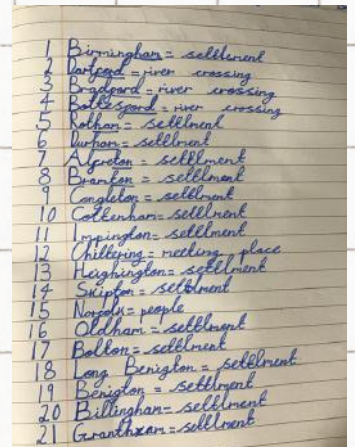 1 Birmingham = settlement
2 Dartford = river crossing
3 Bradford = river crossing
4 Bottesford = river crossing
5 Rotham = settlment
6 Durham = settlment
7 Alfreton = settlment
8 Bramton = settlment
9 Congleton = settlment
10 Cottenham = settlment
11 Impington = settlment
12 Chittering = meeting place
13 Heighington = settlment
14 Skipton = settlment
15 Norfolk = people
16 Oldham = settlment
17 Bolton = settlment
18 Long Benigton = settlment
19 Benigton = settlment
20 Billingham = settlment
21 = settlment